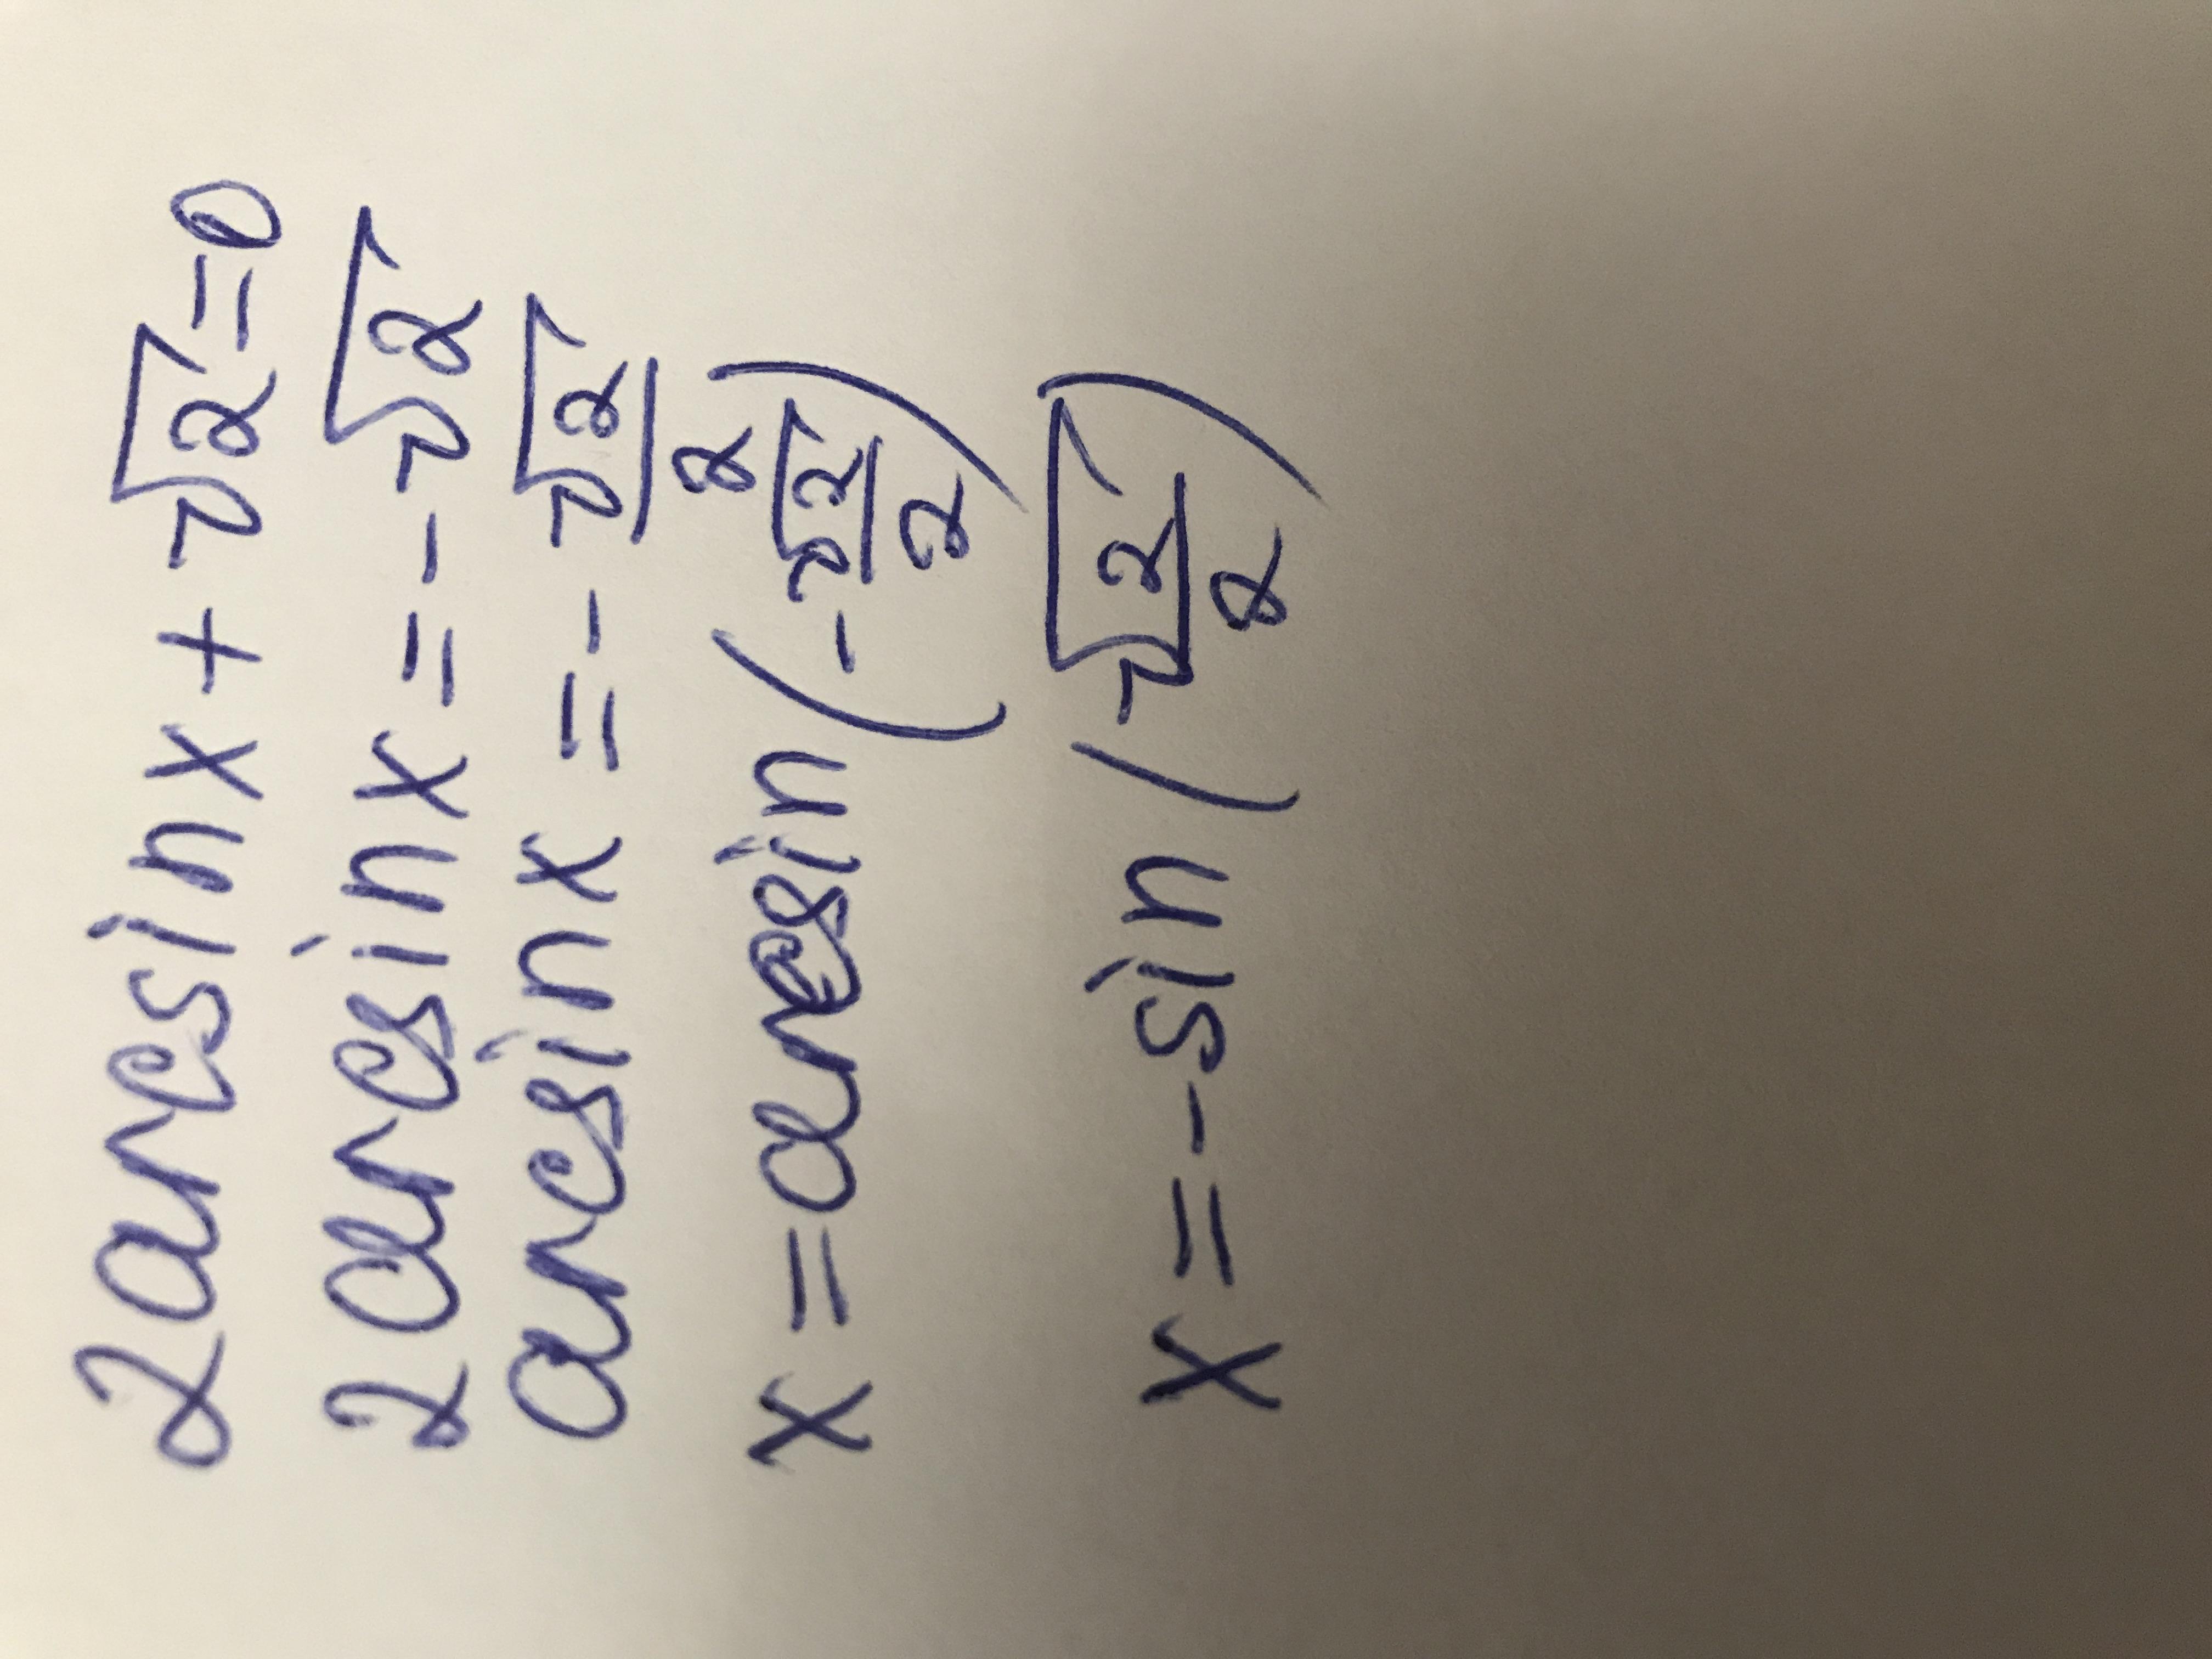 2arcsinx+√2=0
2arcsinx=-√2
arcsinx=-√2/2
x=arcsin(-√2/2)
x=-sin(√2/2)